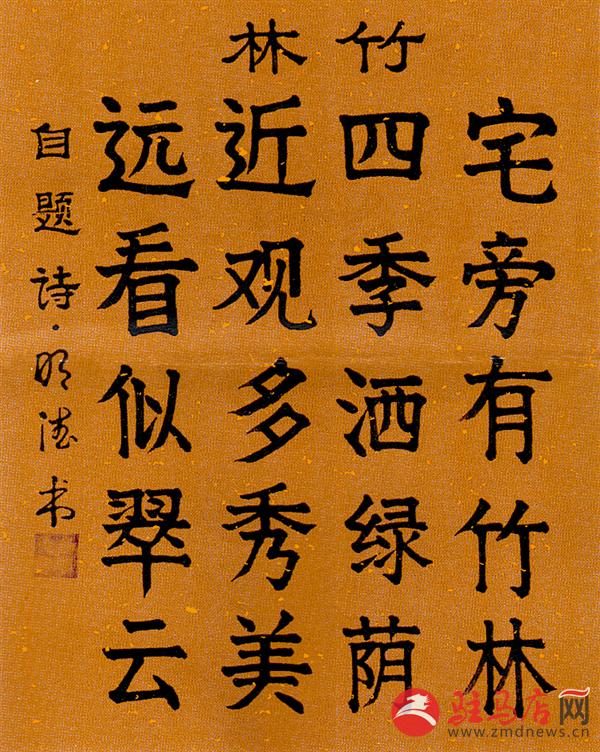 竹林
宅旁有竹林
四季洒绿荫
近观多秀美
远看似翠云
自题诗·明德书
驻马店网
www.zmdnews.cn